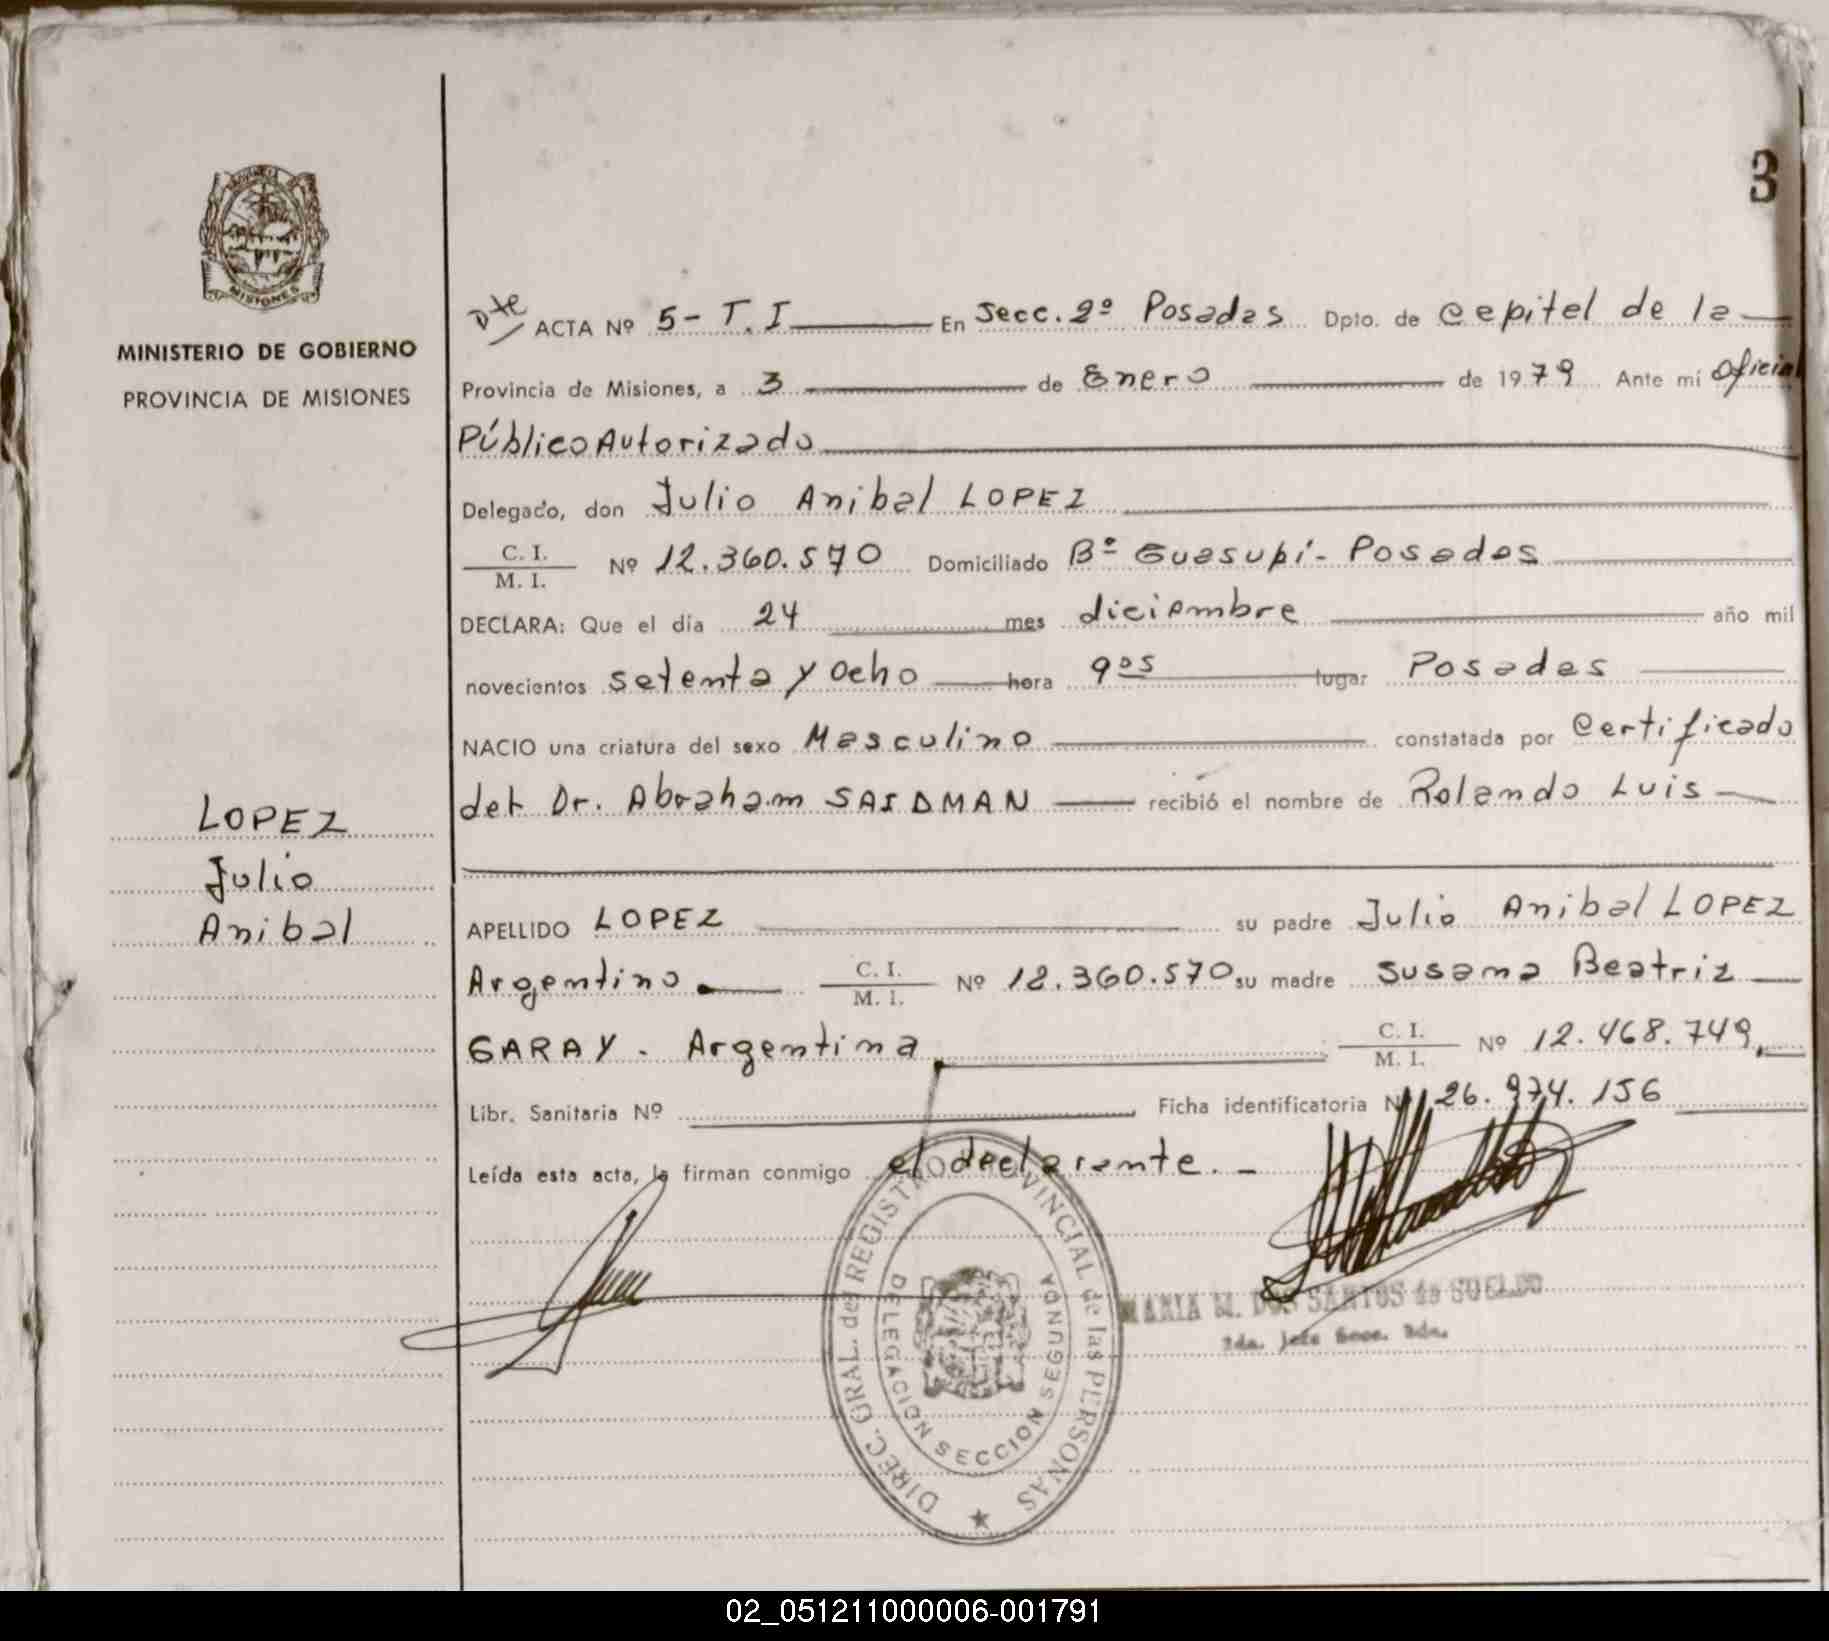 3
MISIONES
MINISTERIO DE GOBIERNO
PROVINCIA DE MISIONES
Dte ACTA Nº 5- T. I En Secc. 2º Posadas Dpto. de Capital de la
Provincia de Misiones, a 3 de Enero de 1979 Ante mí Oficial
Público Autorizado
Delegado, don Julio Anibal LOPEZ
C. I.
M. I. Nº 12.360.570 Domiciliado Bº Guasupí- Posadas
DECLARA: Que el día 24 mes diciembre año mil
novecientos setenta y ocho hora 9 05 lugar Posadas
NACIO una criatura del sexo Masculino constatada por Certificado
del Dr. Abraham SAIDMAN recibió el nombre de Rolando Luis
LOPEZ
Julio
Anibal
APELLIDO LOPEZ su padre Julio Anibal LOPEZ
Argentino C. I.
M. I. Nº 12.360.570 su madre Susana Beatriz
GARAY - Argentina C. I.
M. I. Nº 12.468.749,
Libr. Sanitaria Nº Ficha identificatoria Nº 26.974.156
Leída esta acta, la firman conmigo el declarante. -
DIREC. GRAL. del REGISTRO PROVINCIAL de las PERSONAS
DELEGACION SECCION SEGUNDA
MARIA M. DOS SANTOS de SUELDO
2da. Jefe Secc. 2da.
02_051211000006-001791